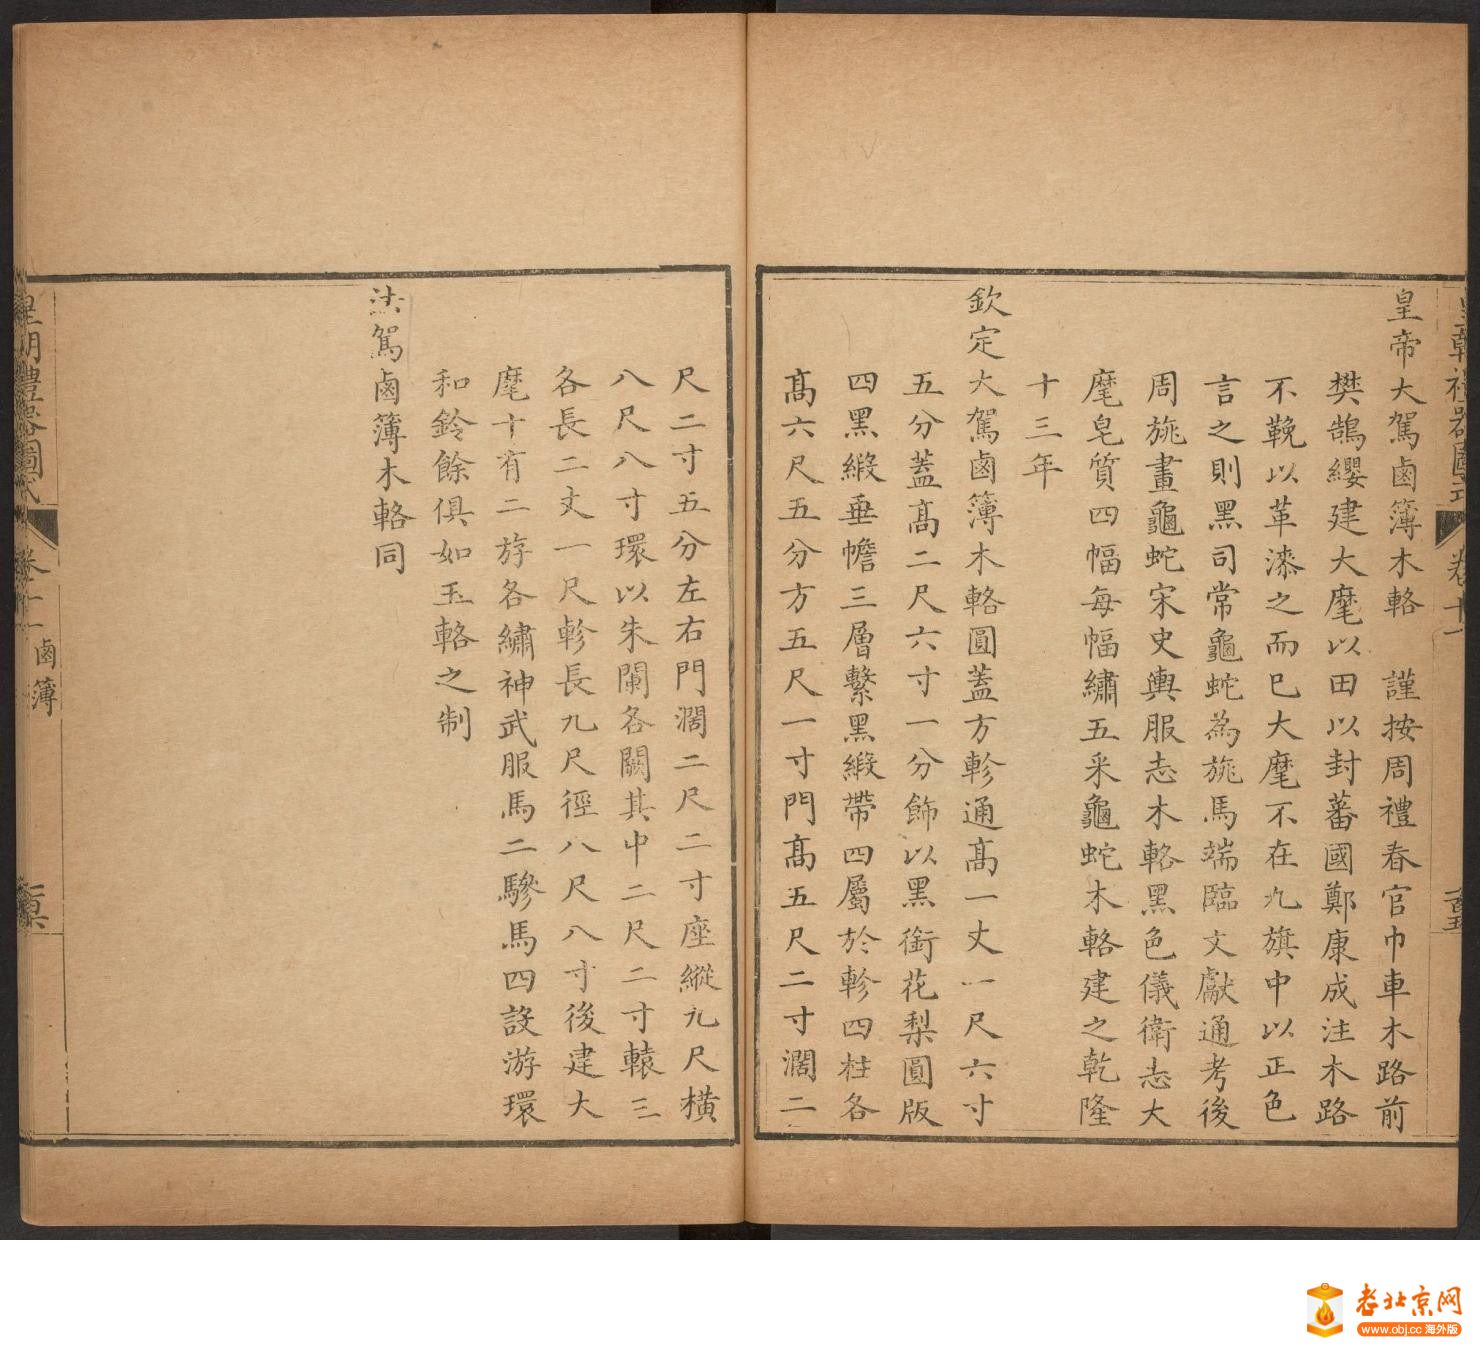 皇朝禮器圖式 卷十一
皇帝大駕鹵簿木輅 謹按周禮春官巾車木路前
樊鵠纓建大麾以田以封蕃國鄭康成注木路
不鞔以革漆之而已大麾不在九旗中以正色
言之則黑司常龜蛇為旐馬端臨文獻通考後
周旐畫龜蛇宋史輿服志木輅黑色儀衛志大
麾皂質四幅每幅繡五采龜蛇木輅建之乾隆
十三年
欽定大駕鹵簿木輅圓蓋方軫通高一丈一尺六寸
五分蓋高二尺六寸一分飾以黑銜花梨圓版
四黑緞垂幨三層繫黑緞帶四屬於軫四柱各
高六尺五分方五尺一寸門高五尺二寸濶二
尺二寸五分左右門濶二尺二寸座縱九尺橫
八尺八寸環以朱闌各闕其中二尺二寸轅三
各長二丈一尺軫長九尺徑八尺八寸後建大
麾十有二斿各繡神武服馬二驂馬四設游環
和鈴餘俱如玉輅之制
法駕鹵簿木輅同
皇朝禮器圖式 卷十一 鹵簿
老北京网
www.obj.cc 海外版